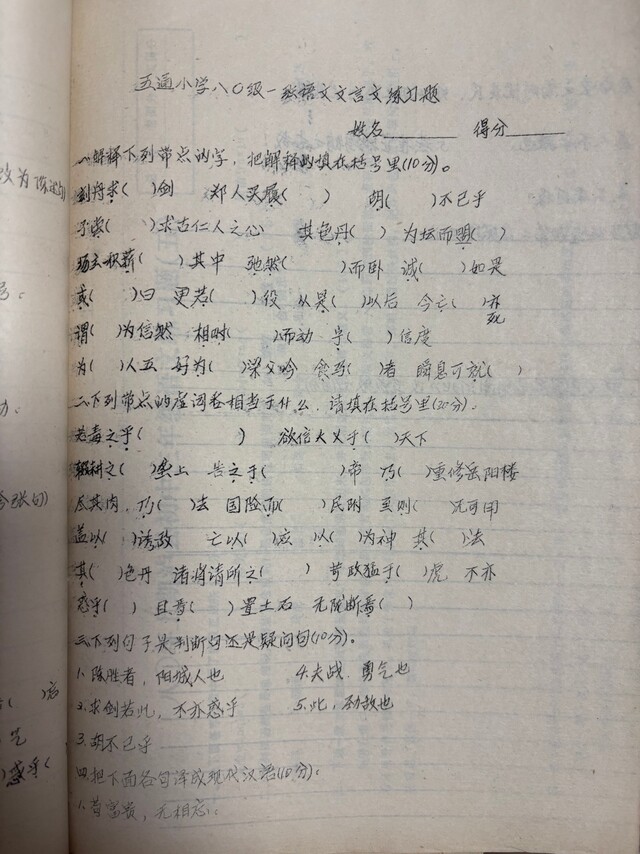 五通小学八〇级一班语文文言文练习题
姓名 得分
一、解释下列带点的字，把解释的填在括号里(10分)。
刻舟求( )剑 郑人买履( ) 胡( )不已乎
予尝( )求古仁人之心 其色丹( ) 为坛而盟( )
场主积薪( )其中 弛然( )而卧 诚( )如是
或( )曰 更若( )役 从是( )以后 今亡( )亦
死
谓( )为信然 相时( )而动 半( )信度
为( )人五 好为( )梁父吟 食马( )者 瞬息可就( )
二、下列带点的虚词各相当于什么，请填在括号里(20分)。
若毒之乎( ) 欲信大义于( )天下
辍耕之( )垄上 告之于( )帝 乃( )重修岳阳楼
尽其肉，乃( )去 国险而( )民附 至则( )无可用
盖以( )诱敌 亡以( )应 以( )为神 其( )法
其( )色丹 诸将请所之( ) 苛政猛于( )虎 不亦
惑乎( ) 且焉( )置土石 无陇断焉( )
三、下列句子是判断句还是疑问句(10分)。
1. 陈胜者，阳城人也 4. 夫战，勇气也
2. 求剑若此，不亦惑乎 5. 此，劲敌也
3. 胡不已乎
四、把下面各句译成现代汉语(10分)：
1. 苟富贵，无相忘：
改为陈述句
号：
力：
( )宕
惑乎(